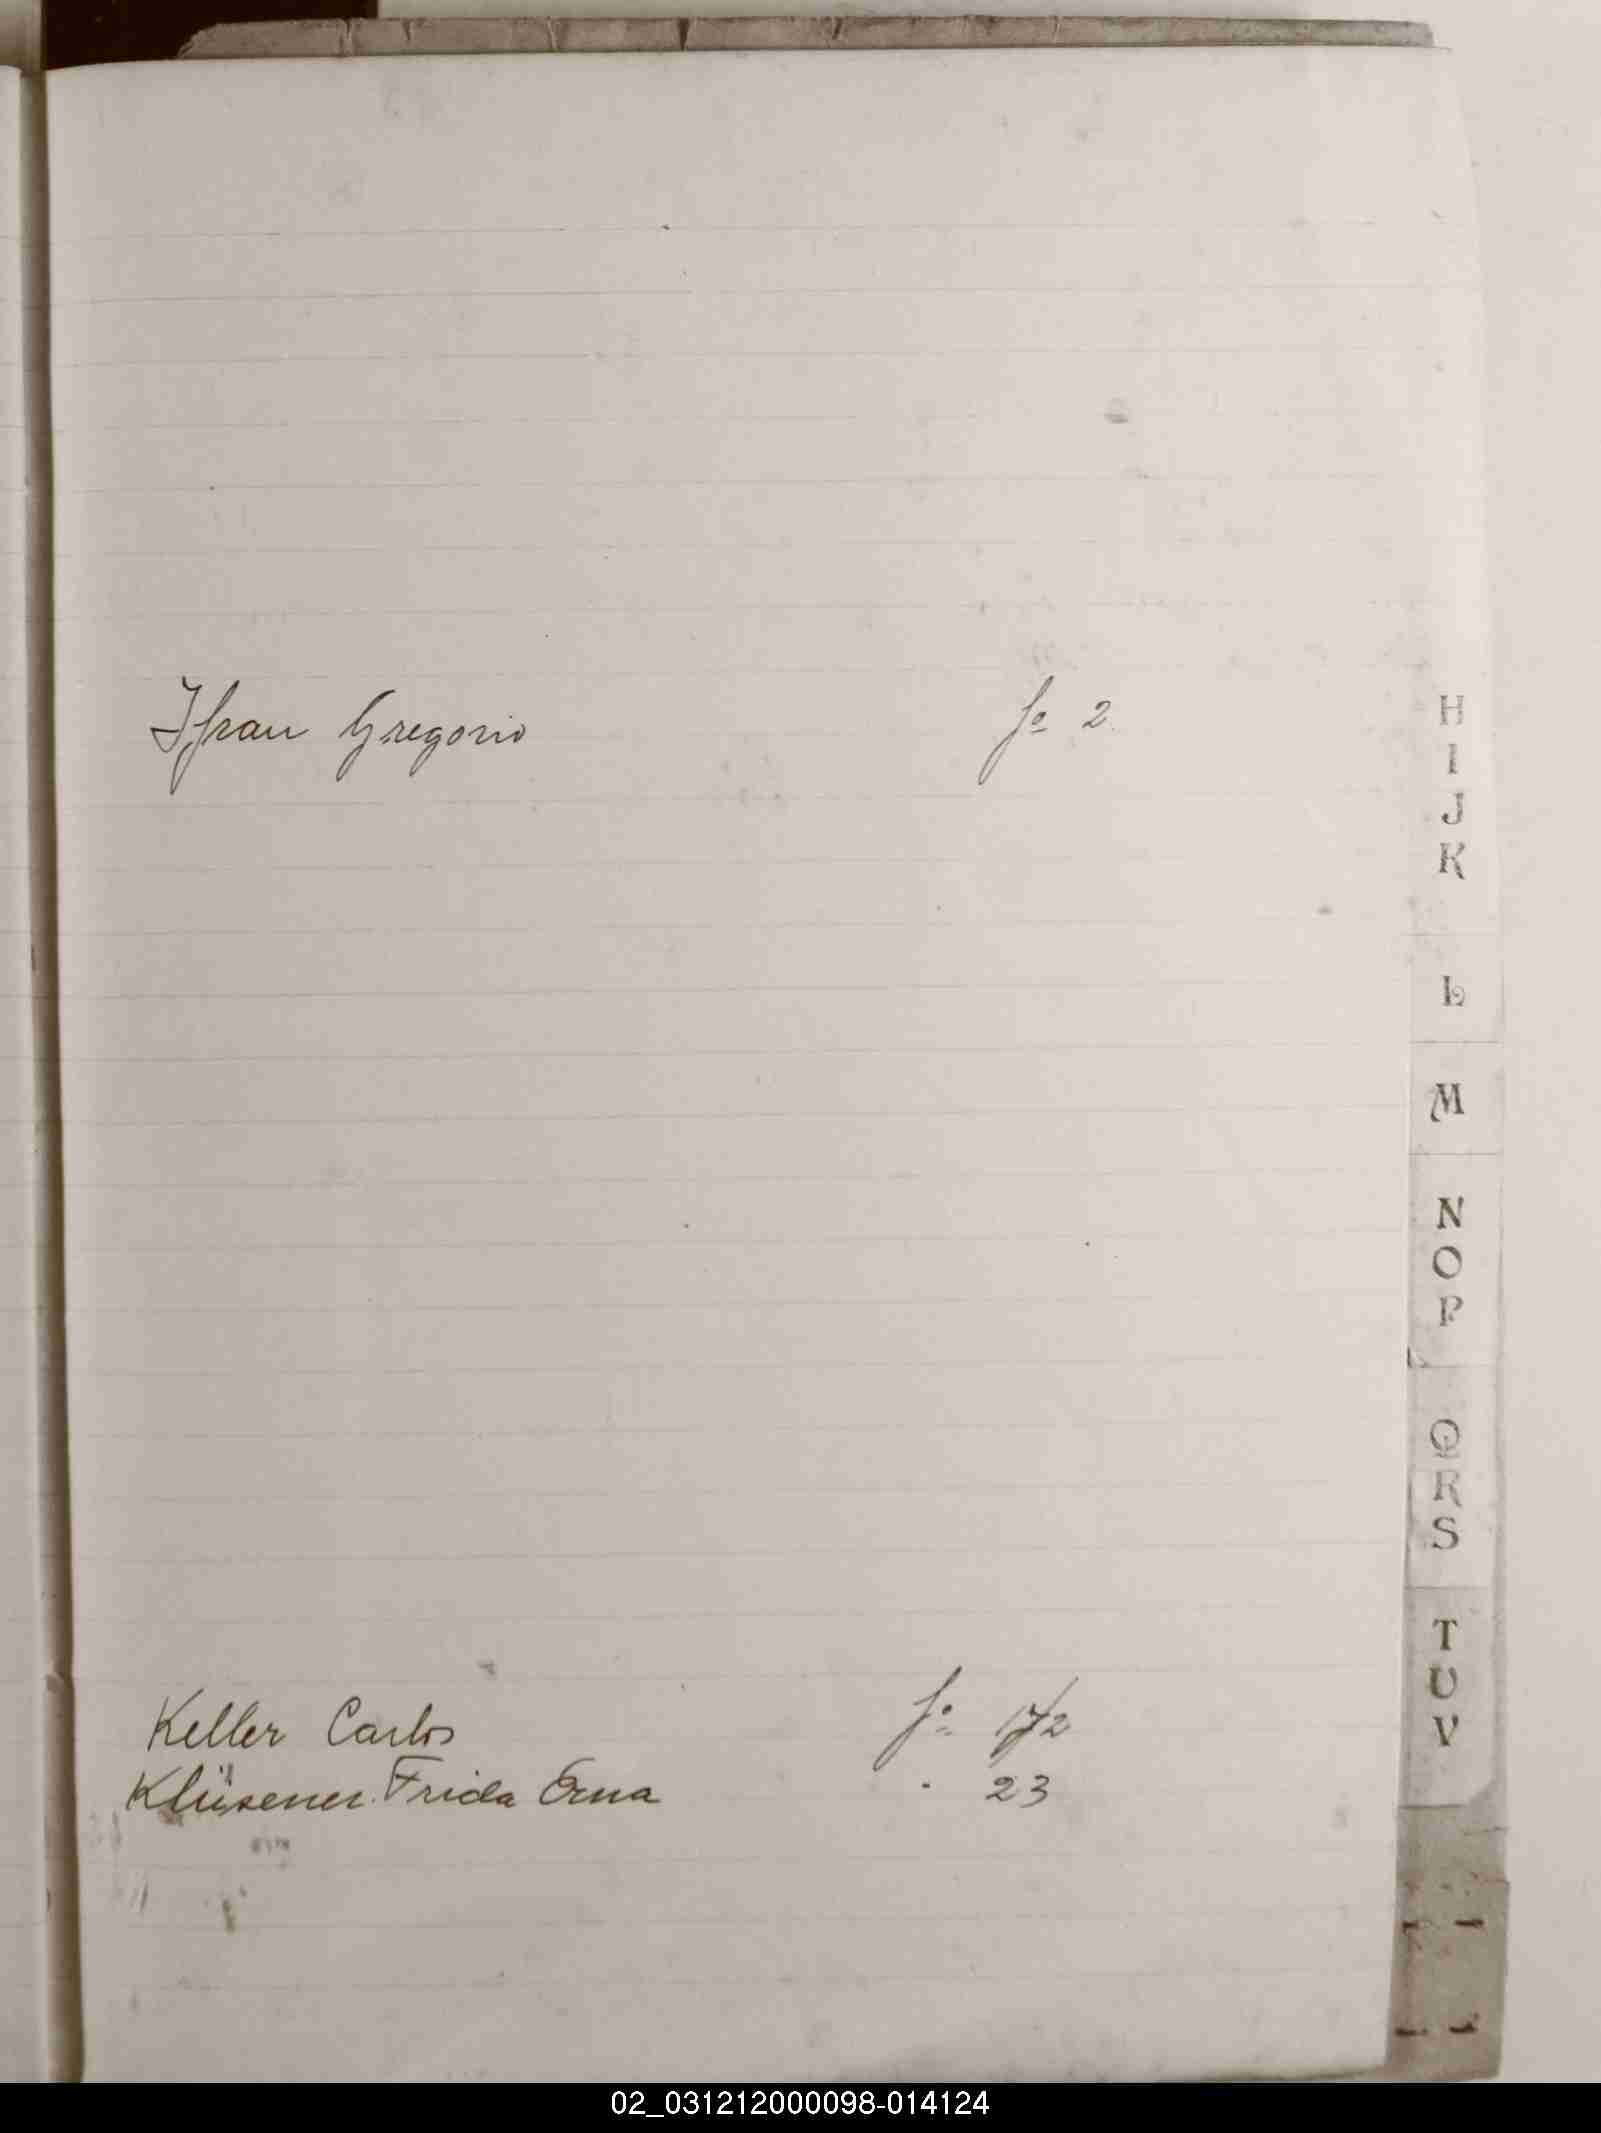 Ifran Gregorio fº 2
H
I
J
K
L
M
N
O
P
Q
R
S
T
U
V
Keller Carlos fº 172
Klüsener Frida Erna " 23
02_031212000098-014124